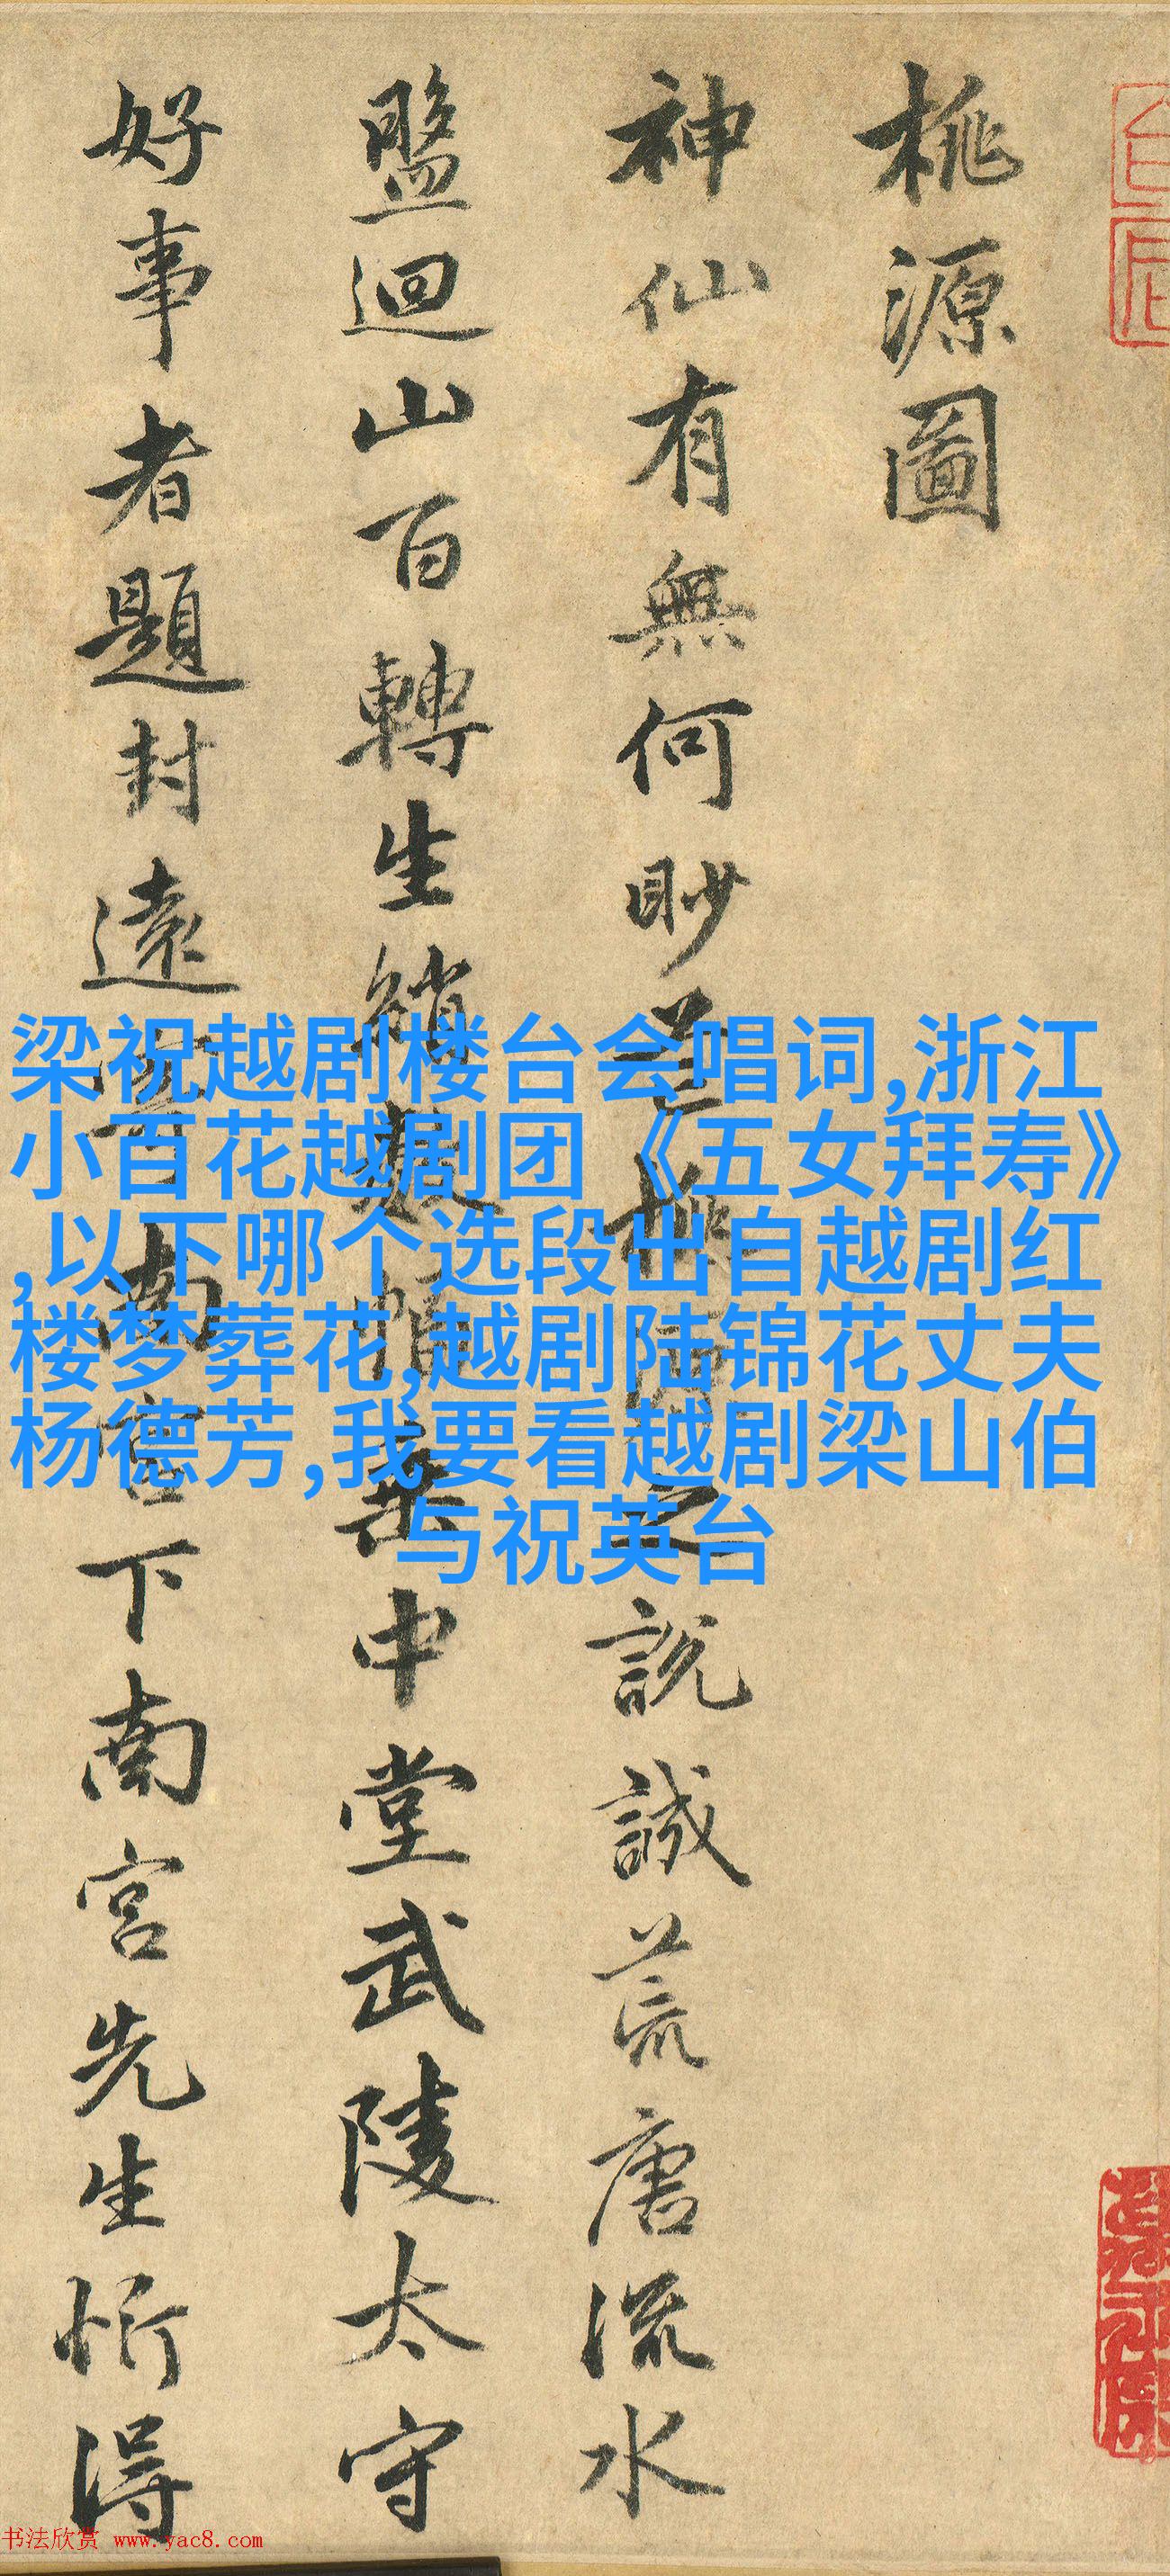 桃源圖
神仙有無何眇芒桃源之說誠荒唐流水
盤迴山百轉生綃數幅垂中堂武陵太守
好事者題封遠寄南宮下南宮先生忻得
梁祝越剧楼台会唱词,浙江
小百花越剧团《五女拜寿》
,以下哪个选段出自越剧红
楼梦葬花,越剧陆锦花丈夫
杨德芳,我要看越剧梁山伯
与祝英台
书法欣赏 www.yac8.com